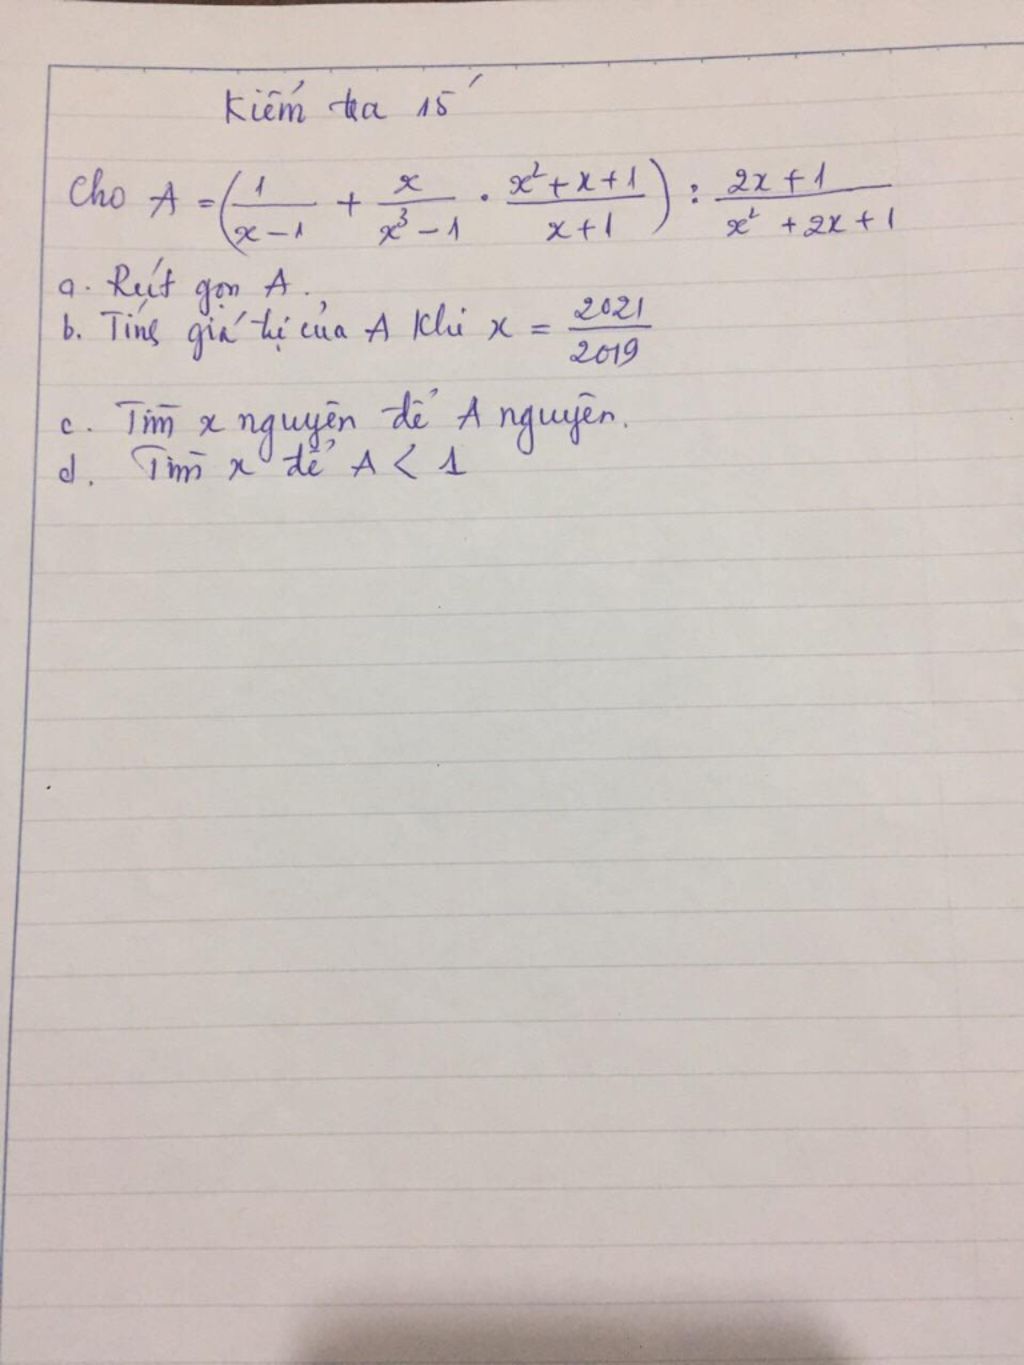 Kiểm tra 15'
Cho A = (1/(x-1) + x/(x³-1) . (x²+x+1)/(x+1)) : (2x+1)/(x²+2x+1)
a. Rút gọn A.
b. Tính giá trị của A khi x = 2021/2019
c. Tìm x nguyên để A nguyên.
d. Tìm x để A < 1